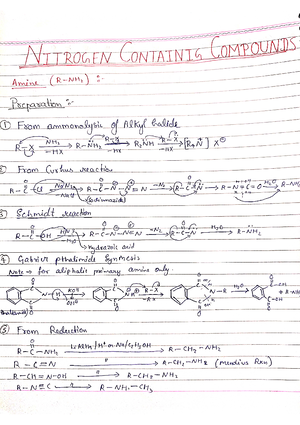 NITROGEN CONTAINIG COMPOUNDS
Amine (R-NH₂) :-
Preparation :-
① From ammonalysis of Alkyl halide
R-X NH₃ -HX R-NH₂ R-X -HX R₂NH R-X -HX [R₃N] X⊖
② From Curtius reaction
R-C-Cl NaN₃ R-C-N-N≡N -N₂ R-C-N R-N=C=O H₂O R-NH₂
③ Schmidt reaction
R-C-OH HN₃ -H₂O R-C-N-N≡N -N₂ R-C-N H₂O R-NH₂
Hydrazoic acid
④ Gabriel pthalimide Synthesis
Note → for aliphatic primary amine only
KOH R-X N-R H₂O
⑤ From Reduction
R-C-NH₂ LiAlH₄ / H⁺ or Na/C₂H₅OH R-CH₂-NH₂
R-C≡N R-CH₂-NH₂ (Mendius Rxn)
R-CH=N-OH R-CH₂-NH₂
R-N≡C R-NH-CH₃